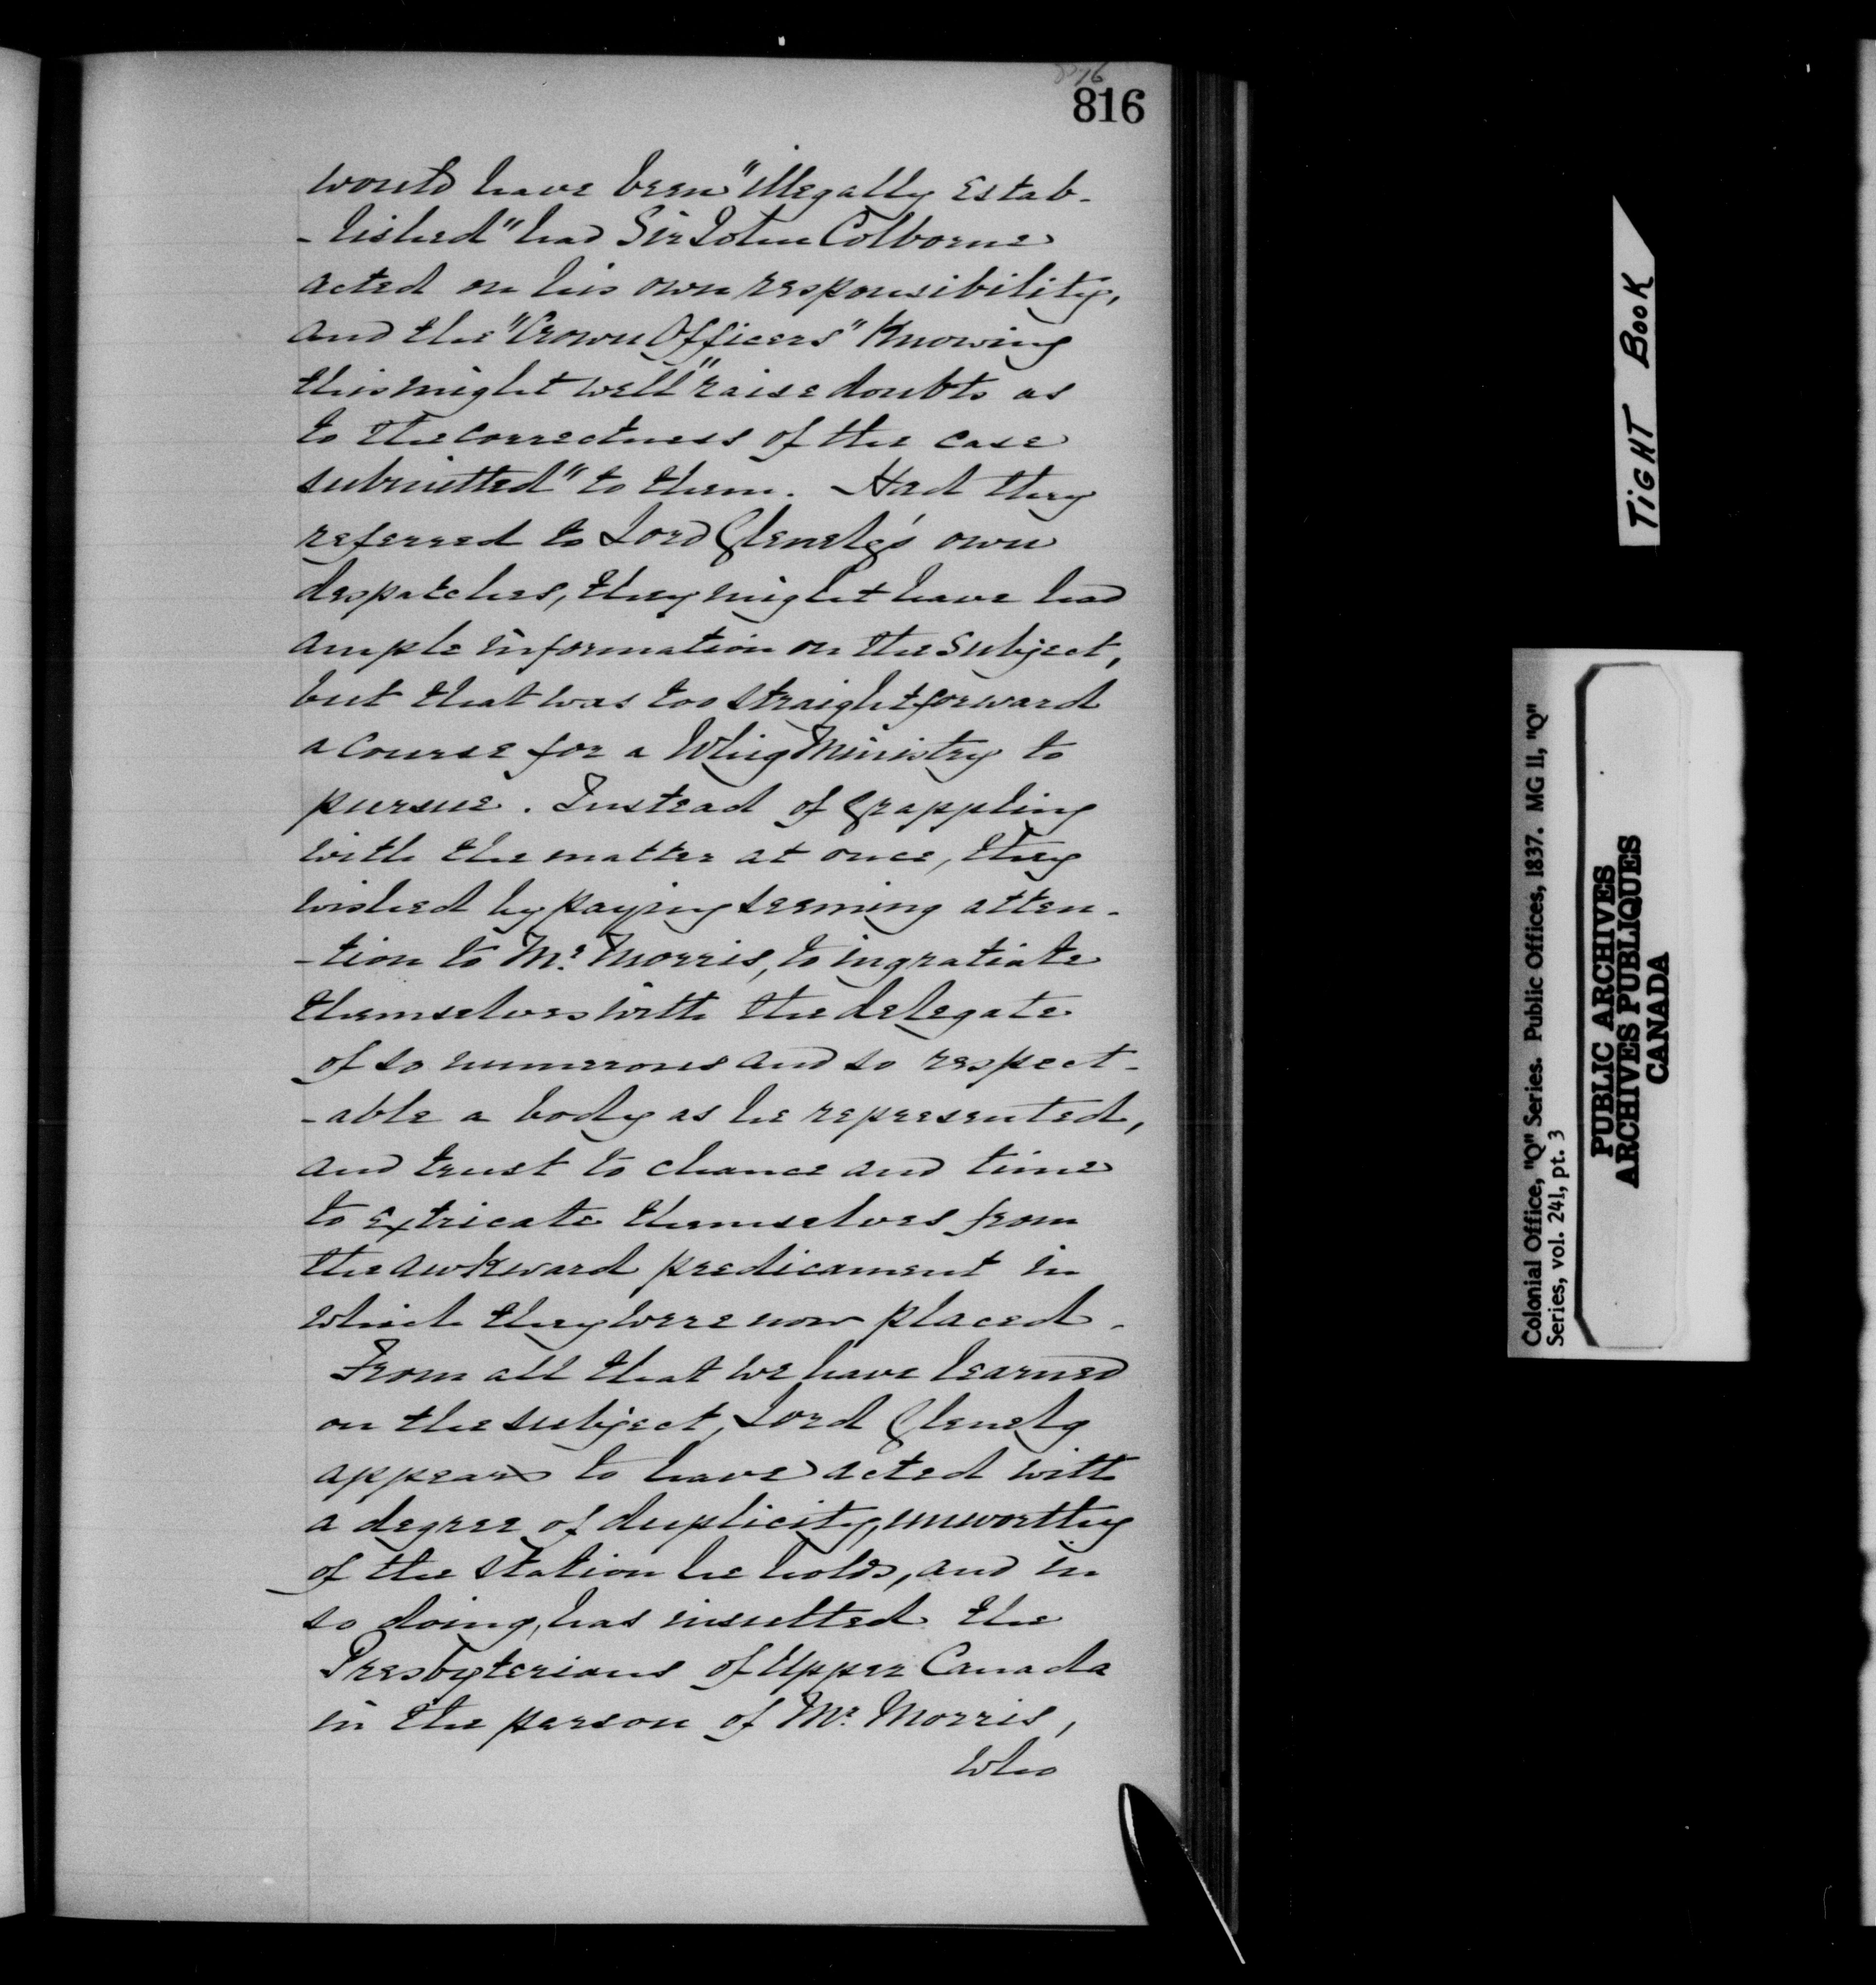 816
would have been "illegally estab-
-lished" had Sir John Colborne
acted on his own responsibility,
and the "Crown Officers" Knowing
this might well "raise doubts as
to the correctness of the case
submitted" to them. Had they
referred to Lord Glenelg's own
despatches, they might have had
ample information on the subject,
but that was too straightforward
a course for a Whig Ministry to
pursue. Instead of grappling
with the matter at once, they
wished by paying seeming atten-
-tion to Mr. Morris, to ingratiate
themselves with the delegate
of so numerous and so respect-
-able a body as he represented,
and trust to chance and time
to extricate themselves from
the awkward predicament in
which they were now placed.
From all that we have learned
on the subject, Lord Glenelg
appears to have acted with
a degree of duplicity, unworthy
of the station he holds, and in
so doing, has insulted the
Presbyterians of Upper Canada
in the person of Mr. Morris,
who
TIGHT BOOK
Colonial Office, "Q" Series. Public Offices, 1837. MG 11, "Q"
Series, vol. 241, pt. 3
PUBLIC ARCHIVES
ARCHIVES PUBLIQUES
CANADA